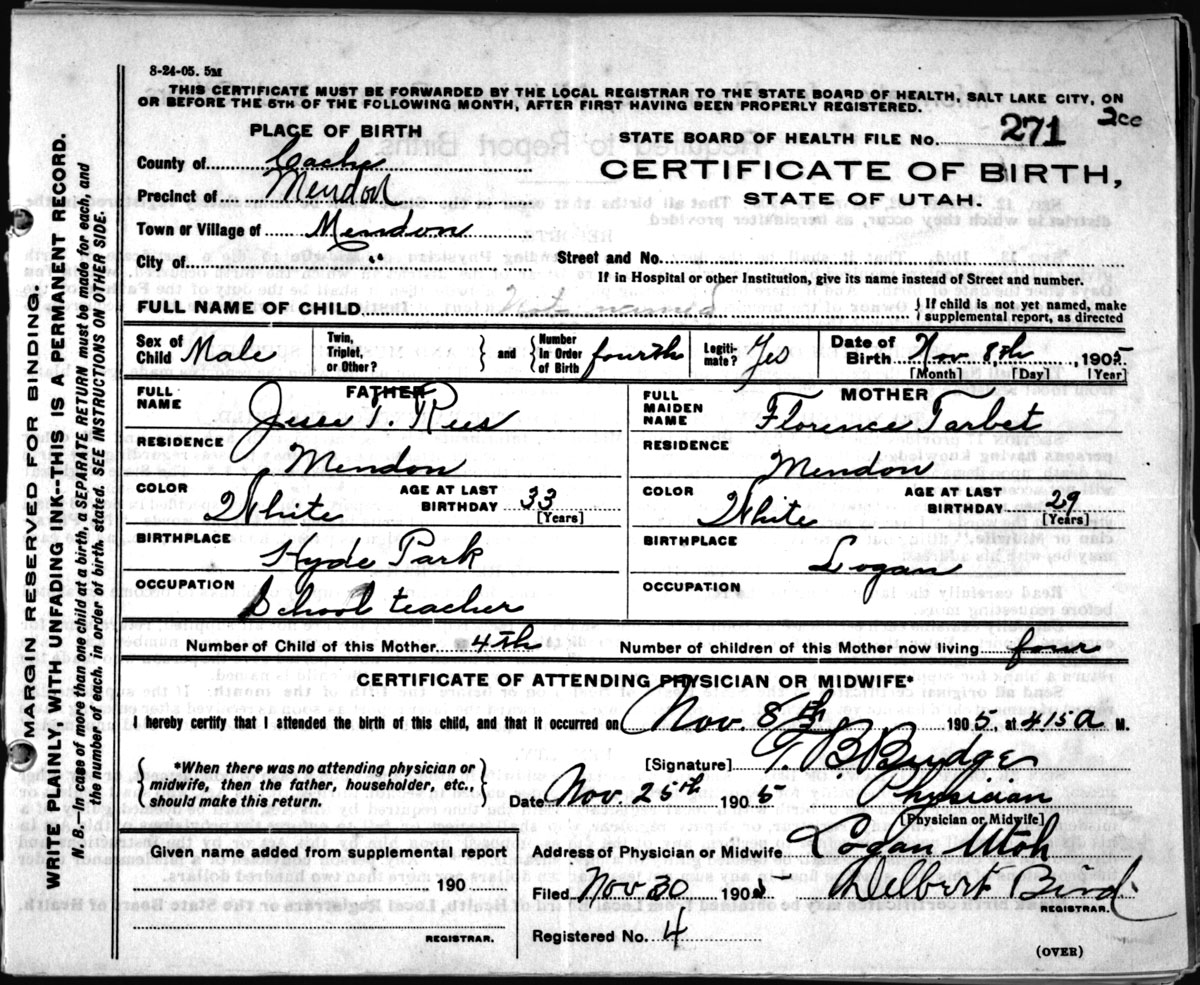 8-24-05. 5M
THIS CERTIFICATE MUST BE FORWARDED BY THE LOCAL REGISTRAR TO THE STATE BOARD OF HEALTH, SALT LAKE CITY, ON
OR BEFORE THE 5TH OF THE FOLLOWING MONTH, AFTER FIRST HAVING BEEN PROPERLY REGISTERED.
PLACE OF BIRTH
STATE BOARD OF HEALTH FILE No. 271
County of Cache
CERTIFICATE OF BIRTH,
Precinct of Mendon
STATE OF UTAH.
Town or Village of Mendon
City of
Street and No.
If in Hospital or other Institution, give its name instead of Street and number.
FULL NAME OF CHILD Not named { If child is not yet named, make supplemental report, as directed
Sex of Child Male Twin, Triplet, or Other? } and { Number In Order of Birth fourth Legiti- mate? Yes Date of Birth Nov 8th, 1905
[Month] [Day] [Year]
FATHER
FULL NAME Jesse T. Rees
MOTHER
FULL MAIDEN NAME Florence Tarbet
RESIDENCE Mendon
RESIDENCE Mendon
COLOR White AGE AT LAST BIRTHDAY 33 [Years]
COLOR White AGE AT LAST BIRTHDAY 29 [Years]
BIRTHPLACE Hyde Park
BIRTHPLACE Logan
OCCUPATION School teacher
OCCUPATION
Number of Child of this Mother 4th Number of children of this Mother now living four
CERTIFICATE OF ATTENDING PHYSICIAN OR MIDWIFE*
I hereby certify that I attended the birth of this child, and that it occurred on Nov. 8th 1905 at 415 a M.
*When there was no attending physician or
midwife, then the father, householder, etc.,
should make this return.
[Signature] T. B. Budge
Date Nov. 25th 1905 Physician
[Physician or Midwife]
Given name added from supplemental report
190
REGISTRAR.
Address of Physician or Midwife Logan Utah
Filed Nov 30 1905 Delbert Bird
REGISTRAR.
Registered No. 4
(OVER)
MARGIN RESERVED FOR BINDING.
WRITE PLAINLY, WITH UNFADING INK--THIS IS A PERMANENT RECORD.
N. B.—In case of more than one child at a birth, a SEPARATE RETURN must be made for each, and
the number of each, in order of birth, stated. SEE INSTRUCTIONS ON OTHER SIDE.